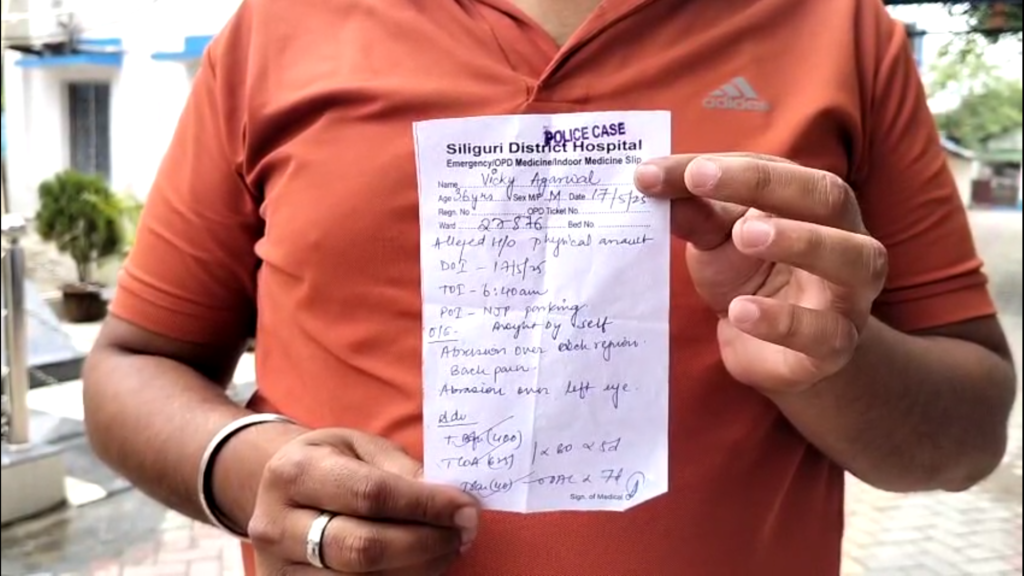 adidas
POLICE CASE
Siliguri District Hospital
Emergency/OPD Medicine/Indoor Medicine Slip
Name Vicky Agarwal
Age 36yrs Sex M/F M Date 17/5/25
Regn. No OPD Ticket No
Ward 27876 Bed No
Alleged H/o physical assault
DOI - 17/5/25
TOI - 6:40am
POI - NJP parking
O/E - by self
Abrasion over region.
Back pain.
Abrasion over left eye.
Adv
(400)
T
(40)
Sign. of Medical